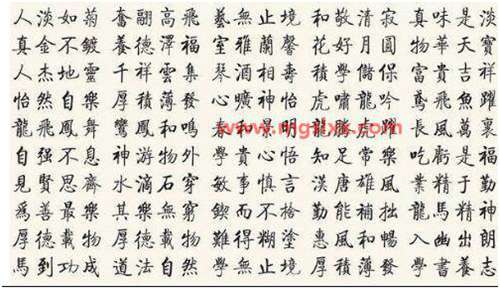 人淡如菊 奮翮高飛 藝無止境 和敬清寂 真味是淡
真金不鍍 養德澤福 室雅蘭馨 花好月圓 物華天寶
人杰地靈 千祥雲集 琴酒相壽 積學儲保 富貴吉祥
怡然自樂 厚積薄發 心曠神怡 虎嘯龍吟 鳶飛魚躍
龍飛鳳舞 鸞鳳和鳴 春景明 龍騰虎躍 長風萬裏
自强不息 神游物外 學貴心悟 知足常樂 吃虧是福
見賢思齊 水滴石穿 敏事慎言 漢唐雄風 業精于勤
爲善最樂 其樂無窮 鍥而不捨 勤能補拙 龍馬精神
厚德載物 厚德載物 難得糊塗 惠風和暢 入幽出朗
馬到功成 道法自然 學無止境 厚積薄發 學書養志